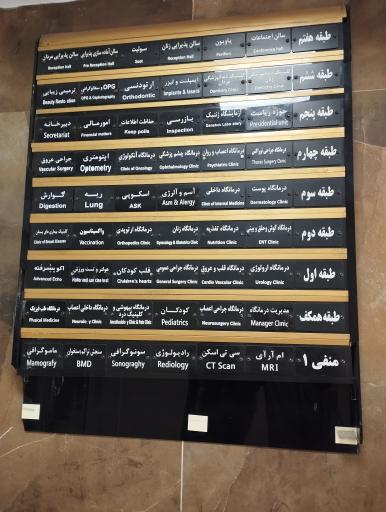 طبقه هفتم
سالن اجتماعات
Conference hall
پاویون
Pavilion
سالن پذیرایی زنان
Reception Hall
سوئیت
Suot
سالن آماده سازی پذیرایی
Pre Reception Hall
سالن پذیرایی مردان
Reception hall
طبقه ششم
ایمپلنت و لیزر
Implants & lasers
ارتودنسی
Orthodontic
OPG و سفالوگرافی
OPG & Cephalography
ترمیمی زیبایی
Beauty Resto ation
طبقه پنجم
حوزه ریاست
Presidential
آزمایشگاه ژنتیک
بازرسی
Inspection
حفاظت اطلاعات
Keep polls
امور مالی
Financial matters
دبیرخانه
Secretariat
طبقه چهارم
درمانگاه جراحی توراکس
Thorax Surgery Clinic
درمانگاه اعصاب و روان
Psychiatric Clinic
درمانگاه چشم پزشکی
Ophthalmology Clinic
درمانگاه آنکولوژی
Clinic of Oncology
اپتومتری
Optometry
جراحی عروق
Vascular Surgery
طبقه سوم
درمانگاه پوست
Dermatology Clinic
درمانگاه داخلی
Clinic of Internal Medicine
آسم و آلرژی
Asm & Alergy
اسکوپی
ASK
ریه
Lung
گوارش
Digestion
طبقه دوم
درمانگاه گوش وحلق و بینی
ENT Clinic
درمانگاه تغذیه
Nutrition Clinic
درمانگاه زنان
Gynecology & Obstetrics Clinic
درمانگاه ارتوپدی
Orthopedics Clinic
واکسیناسیون
Vaccination
کلینیک بیماری های پستان
Clinic of Breast Diseases
طبقه اول
درمانگاه ارولوژی
Urology Clinic
درمانگاه قلب و عروق
Cardio Vascular Clinic
درمانگاه جراحی عمومی
General Surgery Clinic
قلب کودکان
Children's hearts
هولتر و تست ورزش
Holter and exercise test
اکو پیشرفته
Advanced Echo
طبقه همکف
مدیریت درمانگاه
Manager Clinic
درمانگاه جراحی اعصاب
Neurosurgery Clinic
کودکان
Pediatrics
درمانگاه بیهوشی و کلینیک درد
درمانگاه داخلی اعصاب
Neurology Clinic
درمانگاه طب فیزیک
Physical Medicine
منفی ۱
ام آر آی
MRI
سی تی اسکن
CT Scan
رادیولوژی
Rediology
سونوگرافی
Sonograghy
سنجش تراکم استخوان
BMD
ماموگرافی
Mamografy